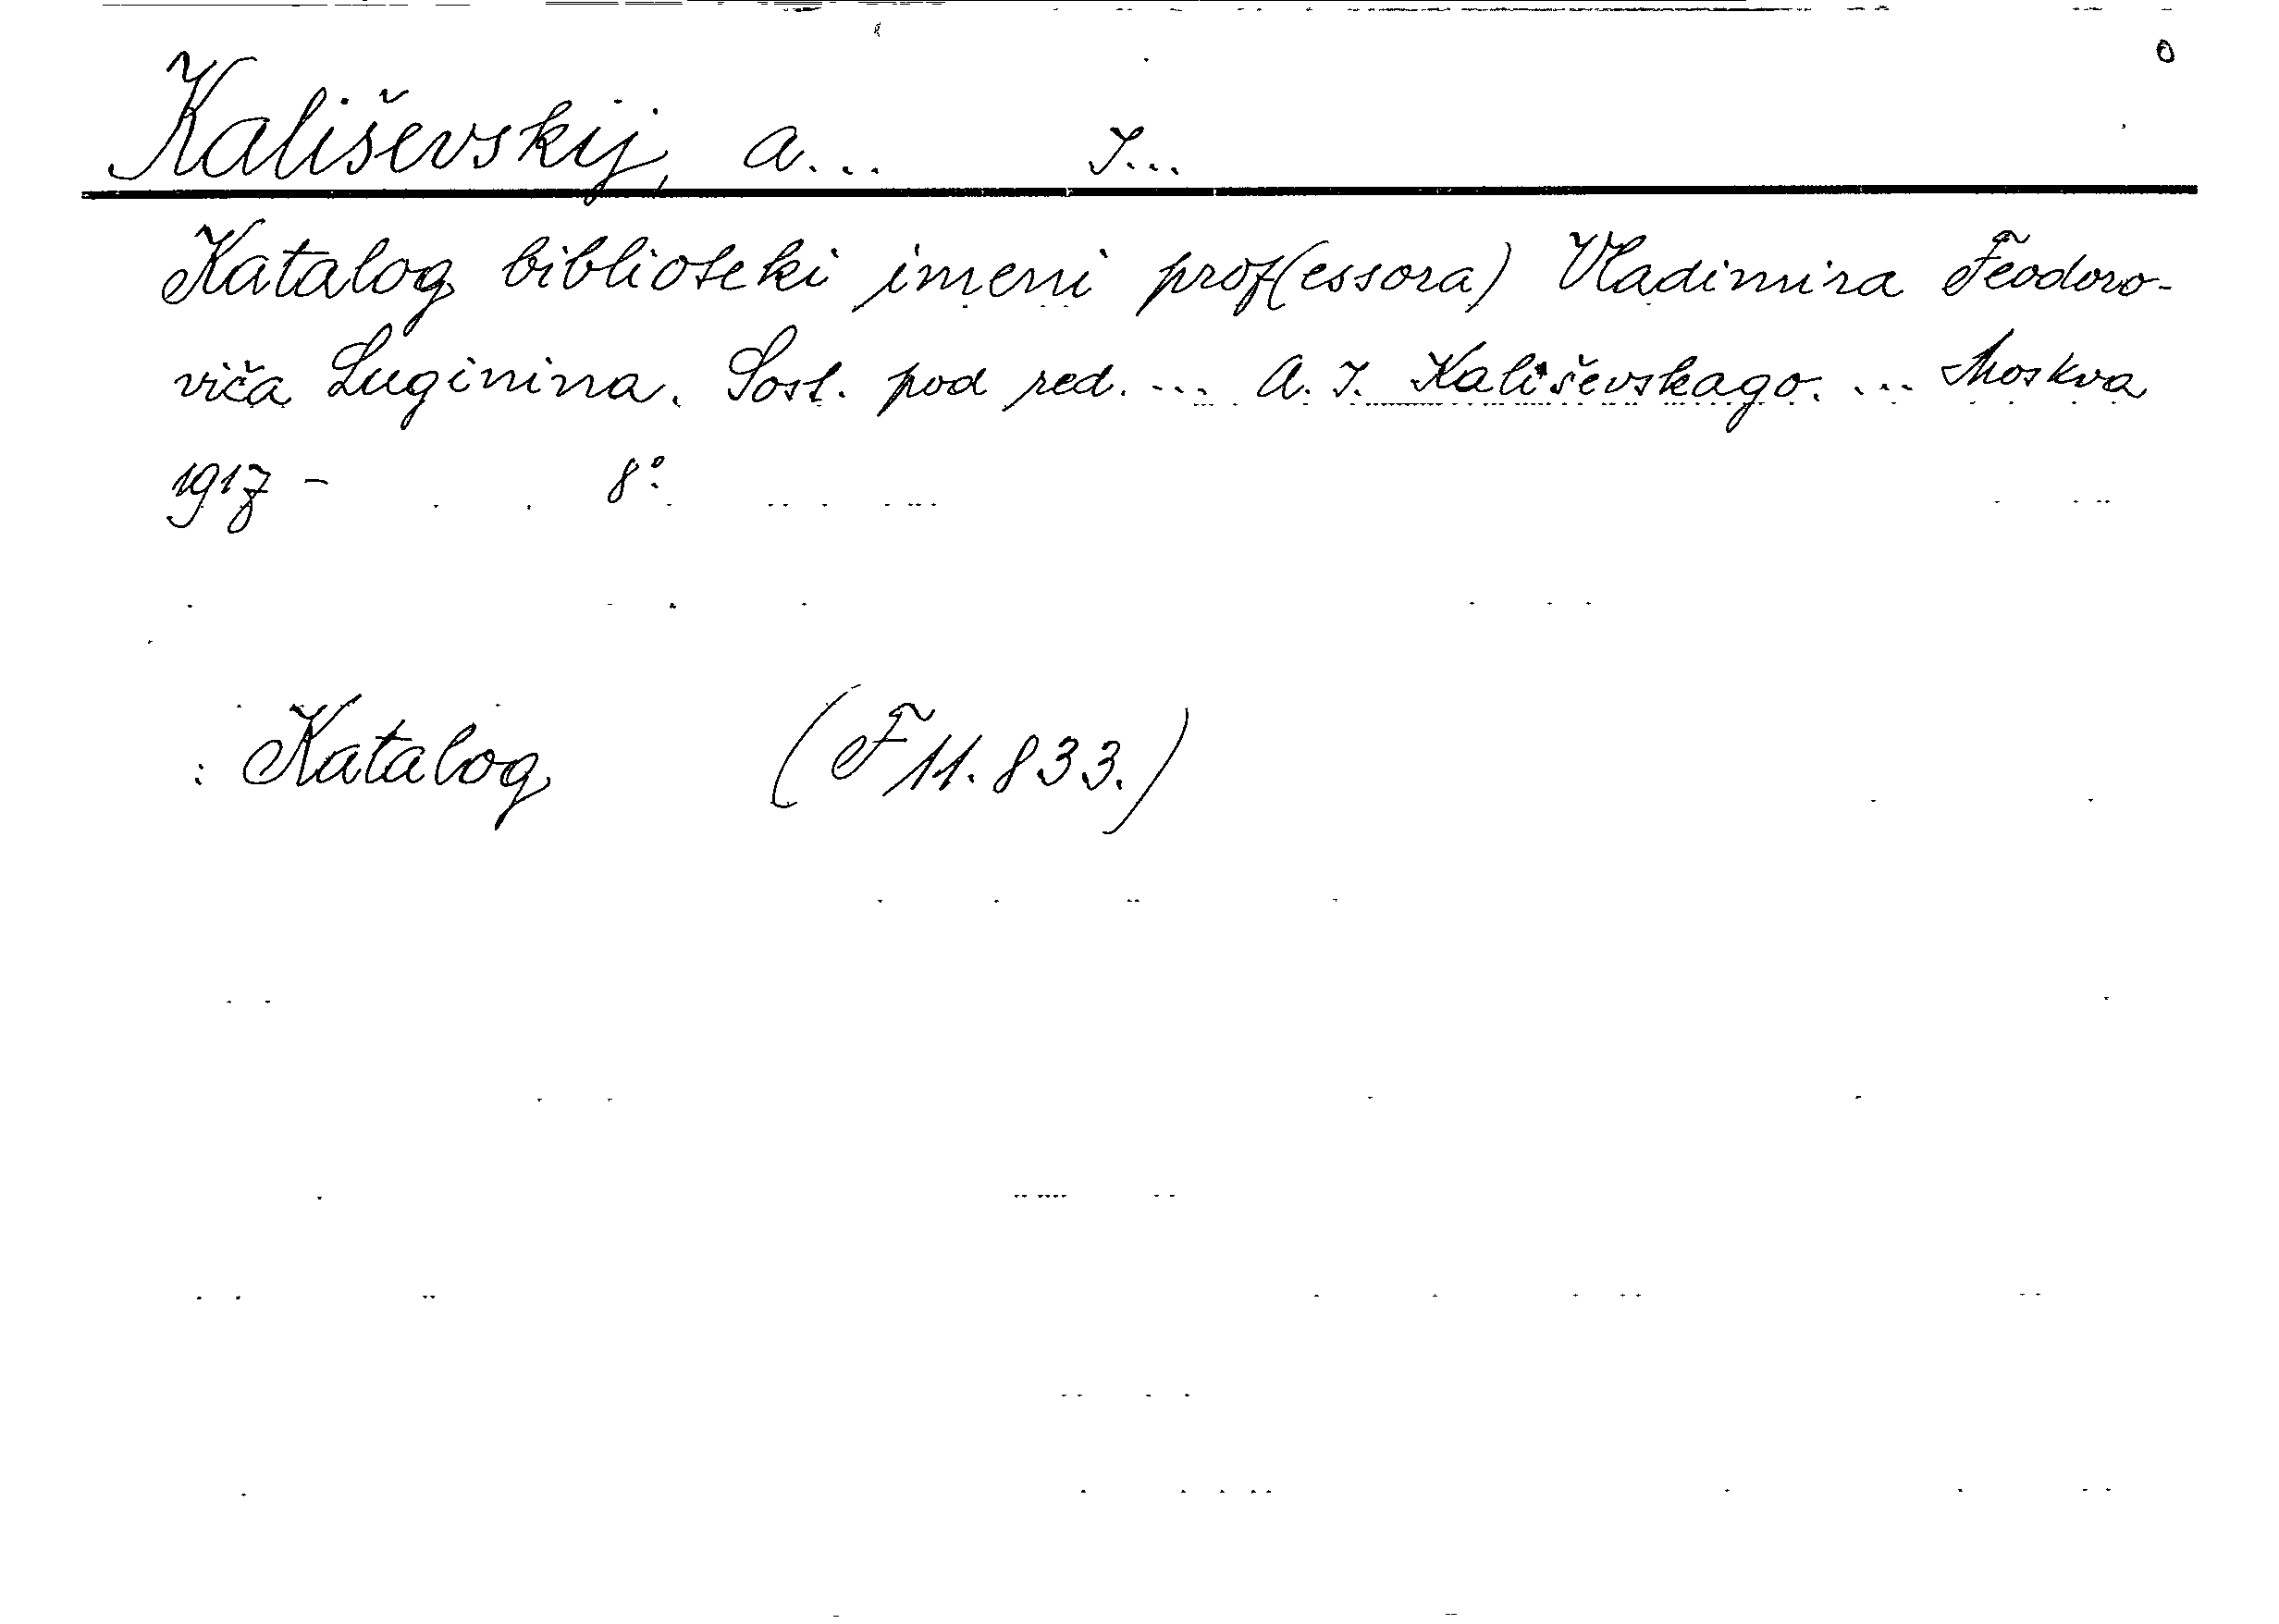 Kališevskij, A... I...
Katalog biblioteki imeni prof(essora) Vladimira Feodoro-
viča Luginina. Sost. pod red. ... A. I. Kališevskago. ... Moskva
1917 - 8°.
: Katalog (F 11.833.)